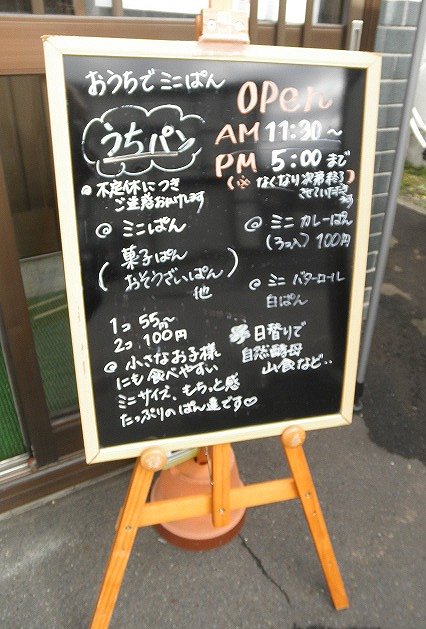 おうちでミニぱん
うちパン
OPen
AM 11:30～
PM 5:00まで
(※なくなり次第終了
させていただきます)
◎不定休につき
ご注意お願いします
◎ミニぱん
(菓子ぱん
おそうざいぱん)
他
1コ 55円～
2コ 100円
◎小さなお子様
にも食べやすい
ミニサイズ、もちっと感
たっぷりのぱん達です♡
◎ミニ カレーぱん
(3コ入) 100円
◎ミニ バターロール
白ぱん
日替りで
自然酵母
山食など..